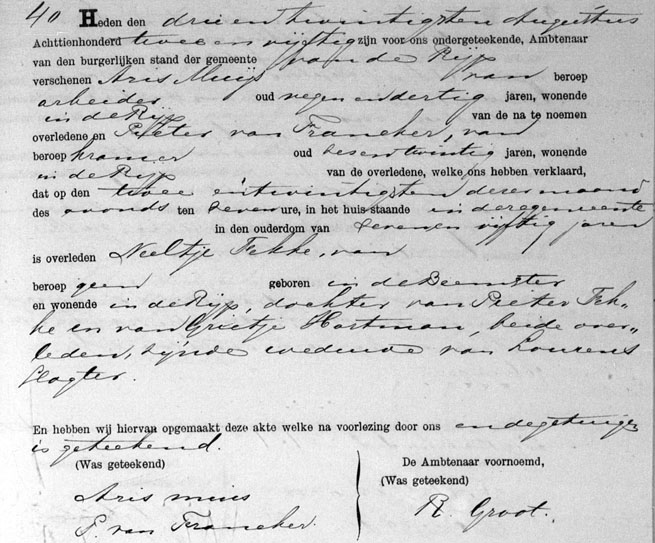 40 Heden den drie en twintigsten Augustus
Achttienhonderd twee en vijftig zijn voor ons ondergeteekende, Ambtenaar
van den burgerlijken stand der gemeente van de Rijp
verschenen Aris Muijs van beroep
arbeider oud negen en dertig jaren, wonende
in de Rijp van de na te noemen
overledene en Pieter van Francker, van
beroep kramer oud zes en twintig jaren, wonende
in de Rijp van de overledene, welke ons hebben verklaard,
dat op den twee en twintigsten dezer maand
des avonds ten zeven ure, in het huis staande in deze gemeente
in den ouderdom van zeven en vijftig jaren
is overleden Neeltje Fekke, van
beroep geen geboren in de Beemster
en wonende in de Rijp, dochter van Pieter Fek-
ke en van Grietje Hartman, beide over-
leden, zijnde weduwe van Lourens
Slagter.
En hebben wij hiervan opgemaakt deze akte welke na voorlezing door ons en de getuigen
is geteekend.
(Was geteekend) De Ambtenaar voornoemd,
(Was geteekend)
Aris muus
P. van Francker. R. Groot.